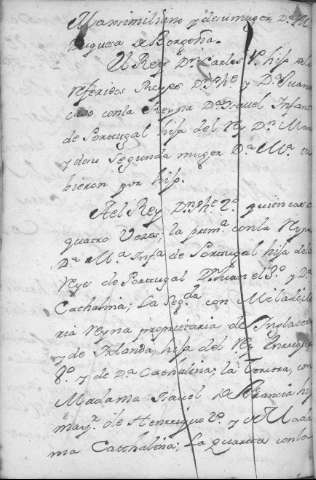 Maximiliano y de su muger Dª M
Duquesa de Borgoña.
El Rey Dn Carlos 1º hijo de
referidos Reyes Dn Phe y Dª Juana
caso con la Reyna Dª Isavel Infan
de Portugal hija del Rey Dn Man
y de su segunda muger Dª Mª tu
bieron por hijo.
Al Rey Dn Phe 2º quien caso
quatro vezes, la primª con la Reyna
Dª Mª Infª de Portugal hija de los
Reyes de Portugal Dn Juan el 3º y Dª
Cathalina; La segda con Mª
ria Reyna proprietaria de Inglater
y de Irlanda, hija del Rey Enrique
8º y de Dª Cathalina; la tercera, con
Madama Isavel de Francia hij
mayr de Henrique 2º y de Mada
ma Cathalina; La quarta con la